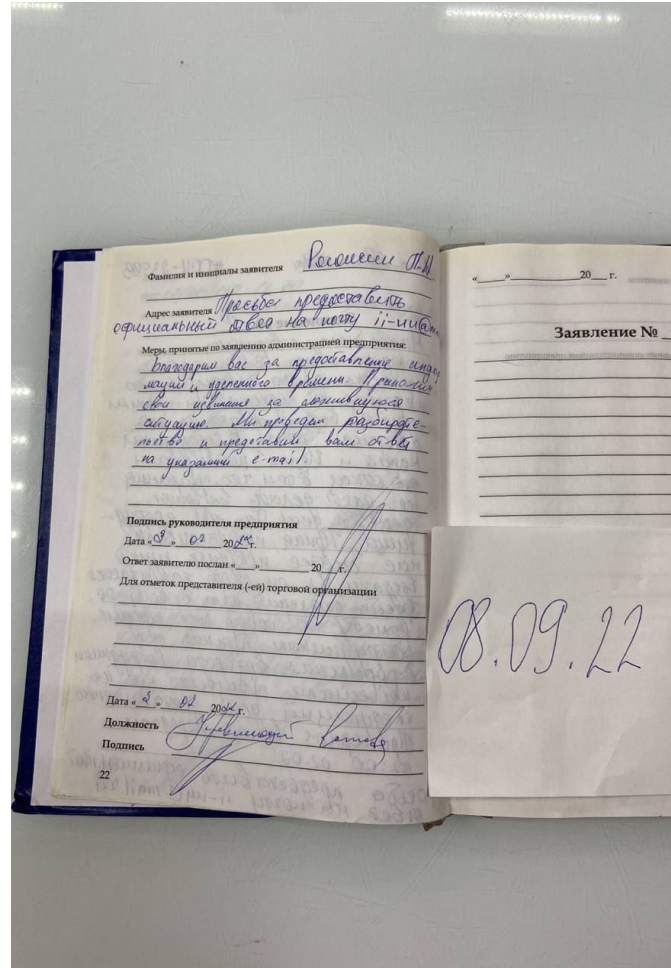 Фамилия и инициалы заявителя П.А.
Адрес заявителя Просьба предоставить
официальный ответ на почту ii-
Меры, принятые по заявлению администрацией предприятия:
Благодарим вас за предоставление инфор
мации и уделенного времени. Приносим
свои извинения за сложившуюся
ситуацию. Мы проведем разбиратe-
льство и предоставим вам ответ
на указанный e-mail.
Подпись руководителя предприятия
Дата « » 02 2022г.
Ответ заявителю послан « » 20 г.
Для отметок представителя (-ей) торговой организации
Дата « » 02 2022г.
Должность Управляющий
Подпись
22
« » 20 г.
Заявление №
08.09.22